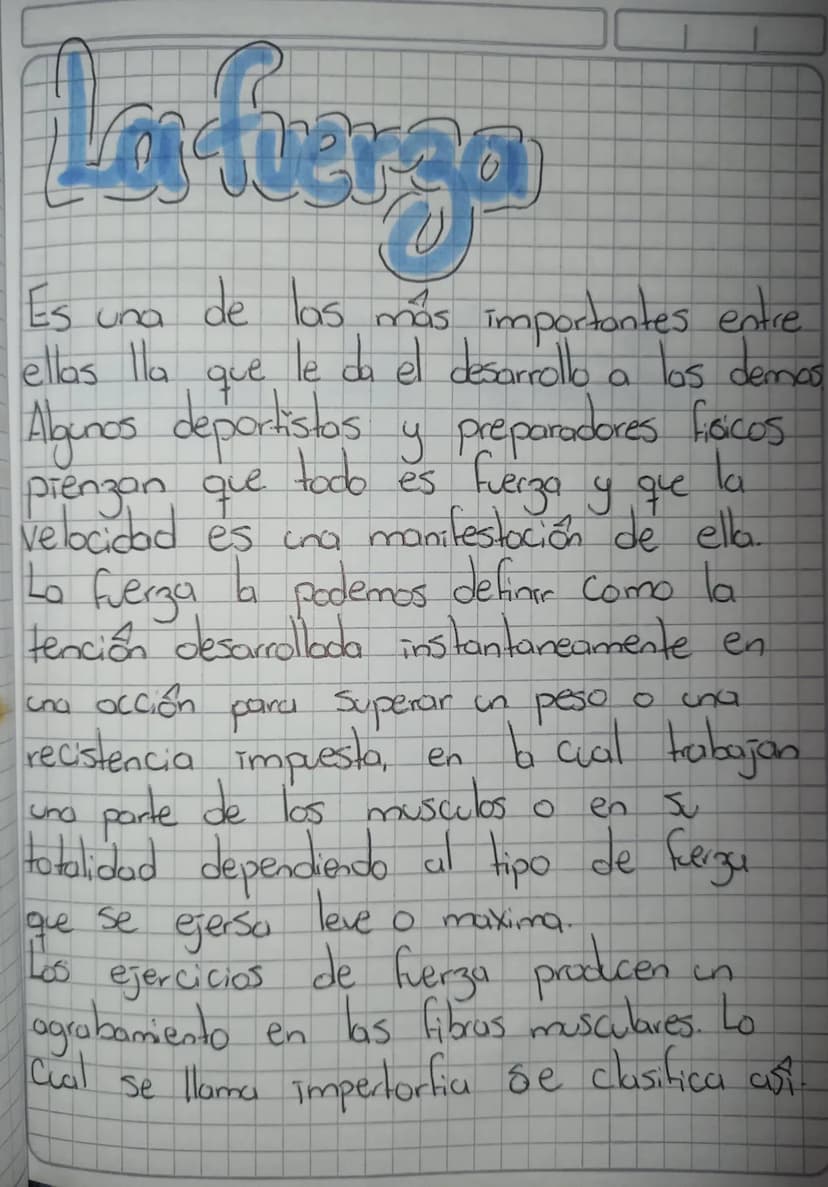 La fuerza
Es una de las más importantes entre
ellas lla que le da el desarrollo a las demas
Algunos deportistas y preparadores fisicos
pienzan que todo es fuerza y que la
velocidad es una manifestación de ella.
La fuerza la podemos definir como la
tención desarrollada instantaneamente en
una acción para superar un peso o una
recistencia impuesta, en la cual trabajan
una parte de los musculos o en su
totalidad dependiendo al tipo de fuerza
que se ejersa leve o maxima.
Los ejercicios de fuerza producen un
agrabamiento en las fibras musculares. Lo
cual se llama impertorfia se clasifica así